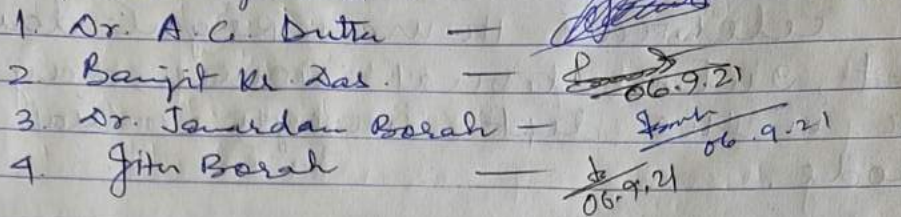 1. Dr. A. C. Dutta —
2 Banjit Kr. Das. — 06.9.21
3. Dr. Janardan Borah — 06.9.21
4. Jitu Borah — 06.9.21